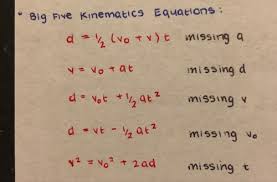 • Big Five Kinematics Equations:
d = 1/2 (v₀ + v) t missing a
v = v₀ + at missing d
d = v₀t + 1/2 at² missing v
d = vt - 1/2 at² missing v₀
v² = v₀² + 2ad missing t